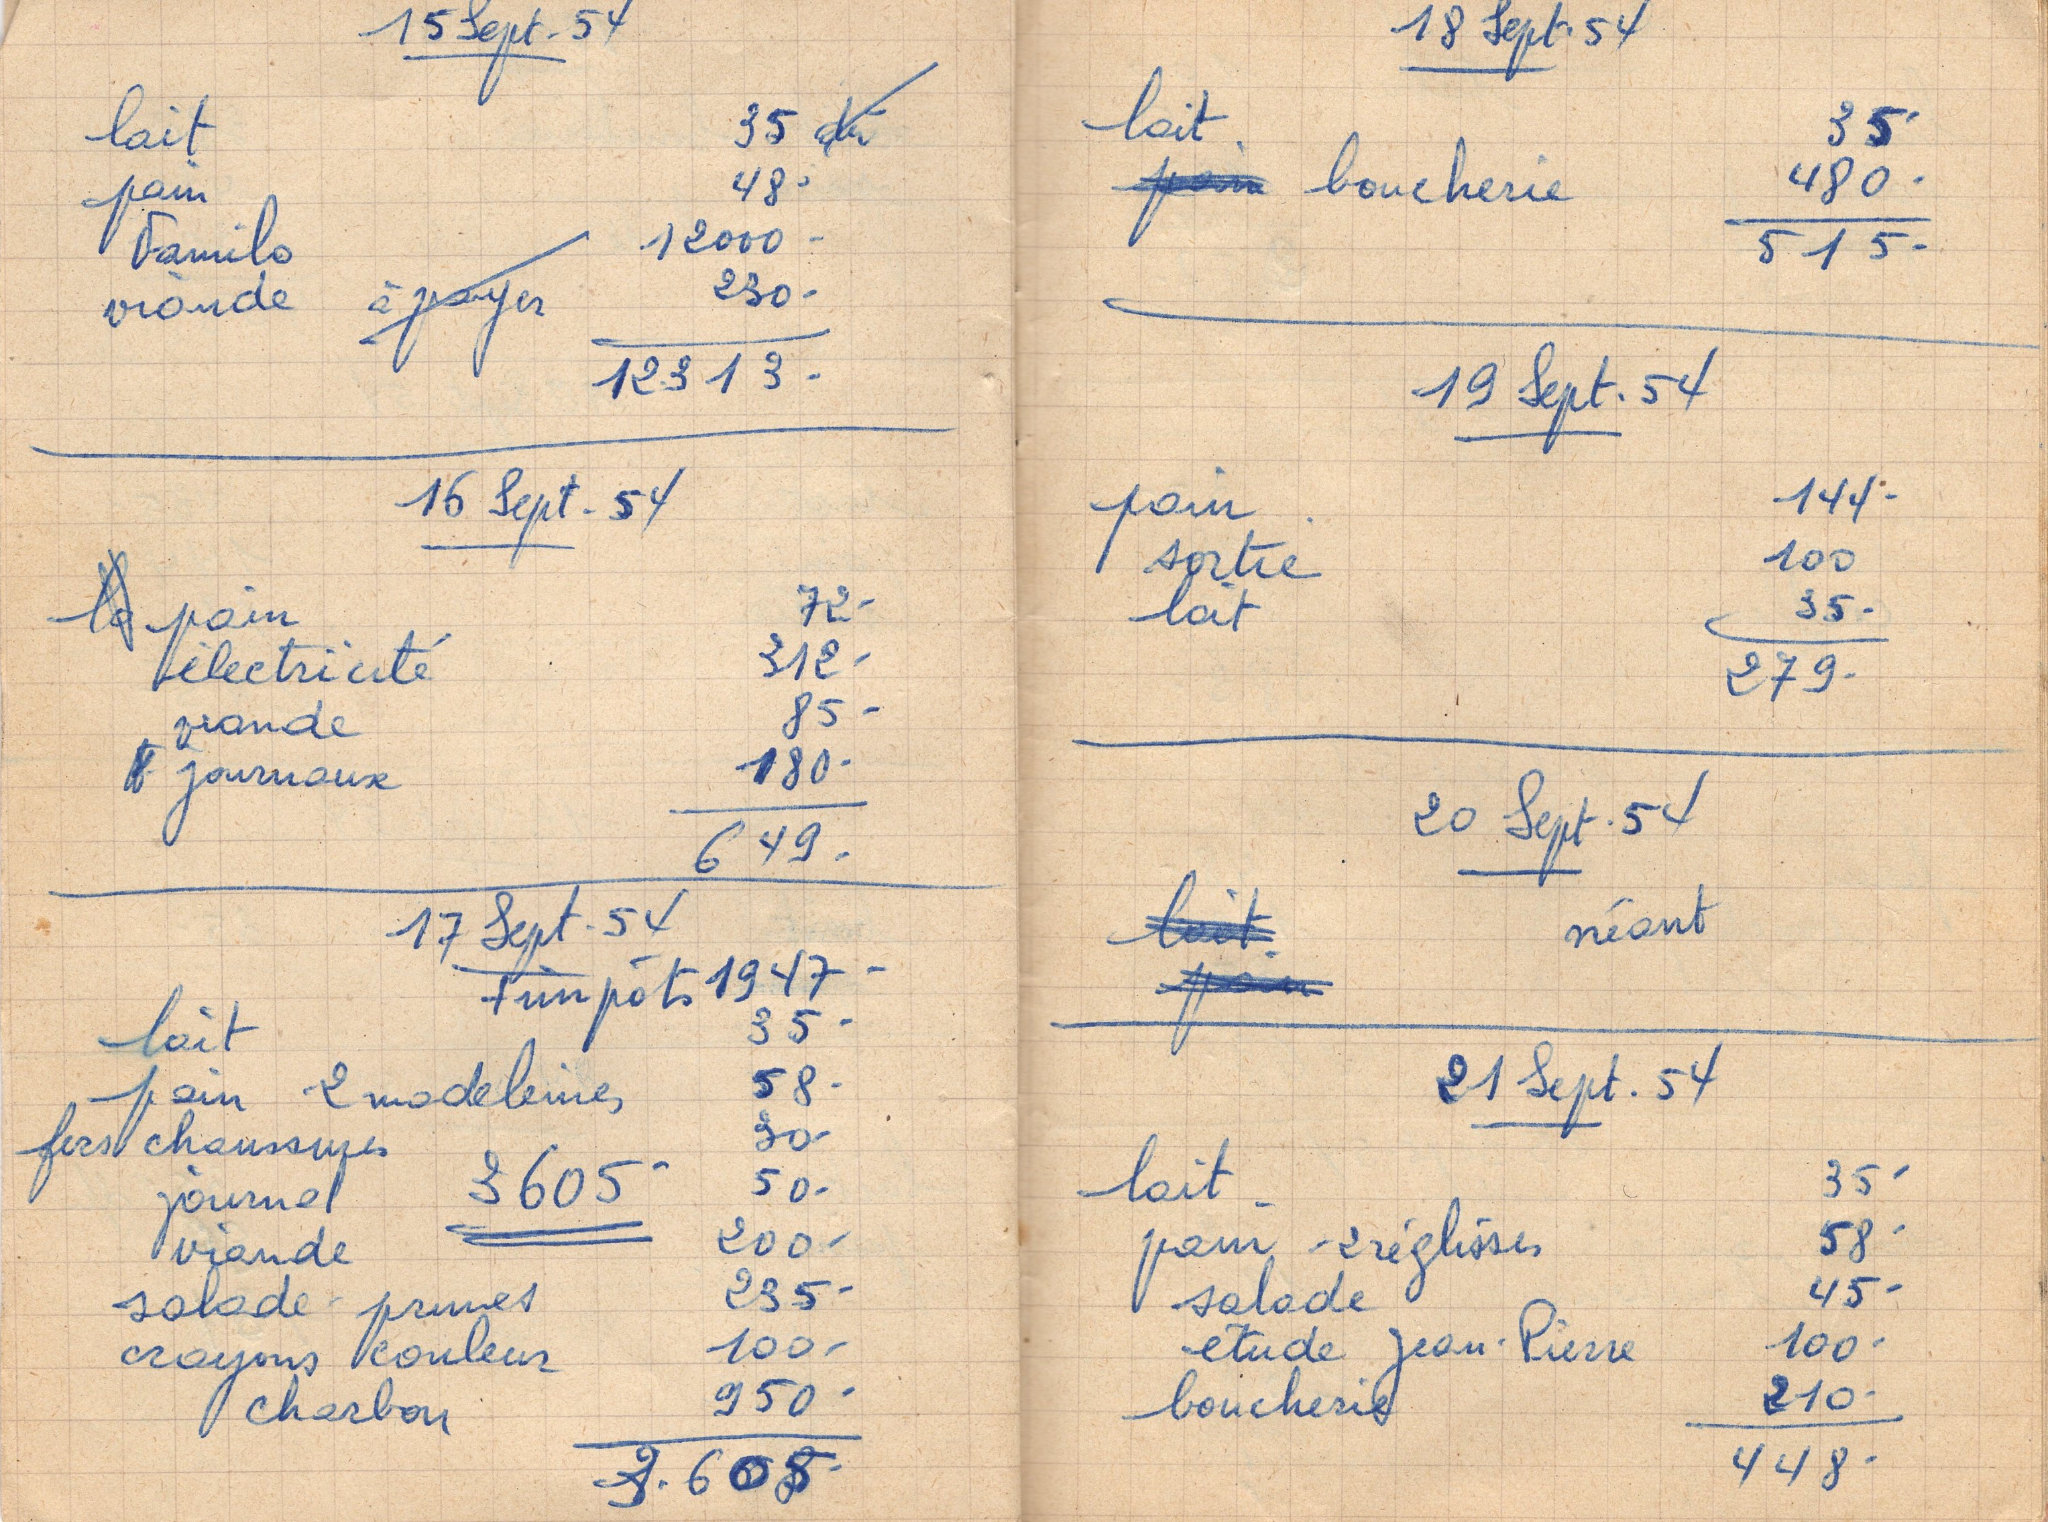 15 Sept. 54
lait 35 dû
pain 48-
Familo 12000-
viande à payer 230-
12313-
16 Sept. 54
pain 72-
électricité 312-
viande 85-
journaux 180-
649-
17 Sept. 54
+ impôts 1947-
lait 35-
pain 2 madeleines 58-
fers chaussures 30-
journal 50-
3605-
viande 200-
salade - prunes 235-
crayons couleur 100-
charbon 950-
3.605-
18 Sept. 54
lait 35-
pain boucherie 480-
515-
19 Sept. 54
pain 144-
sortie 100
lait 35-
279-
20 Sept. 54
lait néant
pain
21 Sept. 54
lait 35-
pain - 2 réglisses 58-
salade 45-
etude Jean-Pierre 100-
boucherie 210-
448-